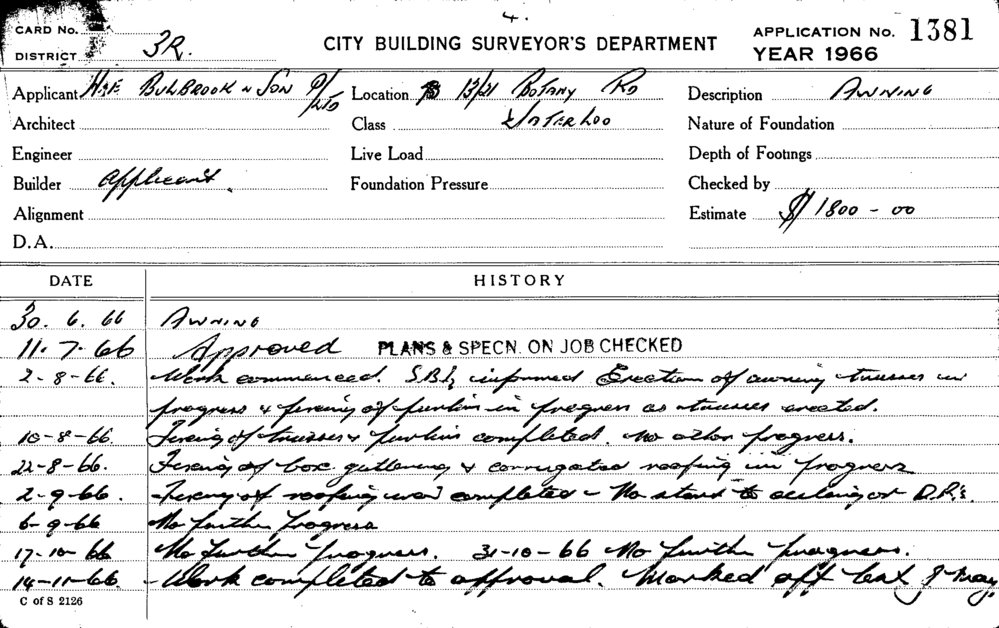 4.
CARD No.
DISTRICT 3R.
CITY BUILDING SURVEYOR'S DEPARTMENT
APPLICATION No. 1381
YEAR 1966
Applicant H&E BULBROOK & SON P/LTD
Location 13/21 BOTANY RD
Description AWNING
Architect
Class WATERLOO
Nature of Foundation
Engineer
Live Load
Depth of Footings
Builder Applicant.
Foundation Pressure
Checked by
Alignment
Estimate $1800-00
D.A.
DATE HISTORY
30. 6. 66 AWNING
11. 7. 66 Approved PLANS & SPECN. ON JOB CHECKED
2-8-66. Work commenced. S.B.I. informed Erection of awning trusses in
progress & fixing of purlins in progress as trusses erected.
10-8-66. Fixing of trusses & purlins completed. No other progress.
22-8-66. Fixing of box guttering & corrugated roofing in progress
2-9-66. Fixing of roofing iron completed - No start to ceiling or D.P.s.
6-9-66 No further progress
17-10-66 No further progress. 31-10-66 No further progress.
14-11-66. Work completed to approval. Marked off
C of S 2126